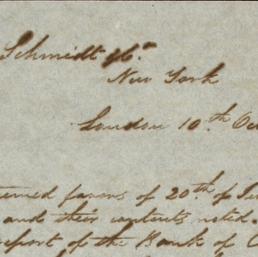 Schmidt & Co
New York
London 10th Oc
favors of 20th of
and their contents noted.
report of the Bank of